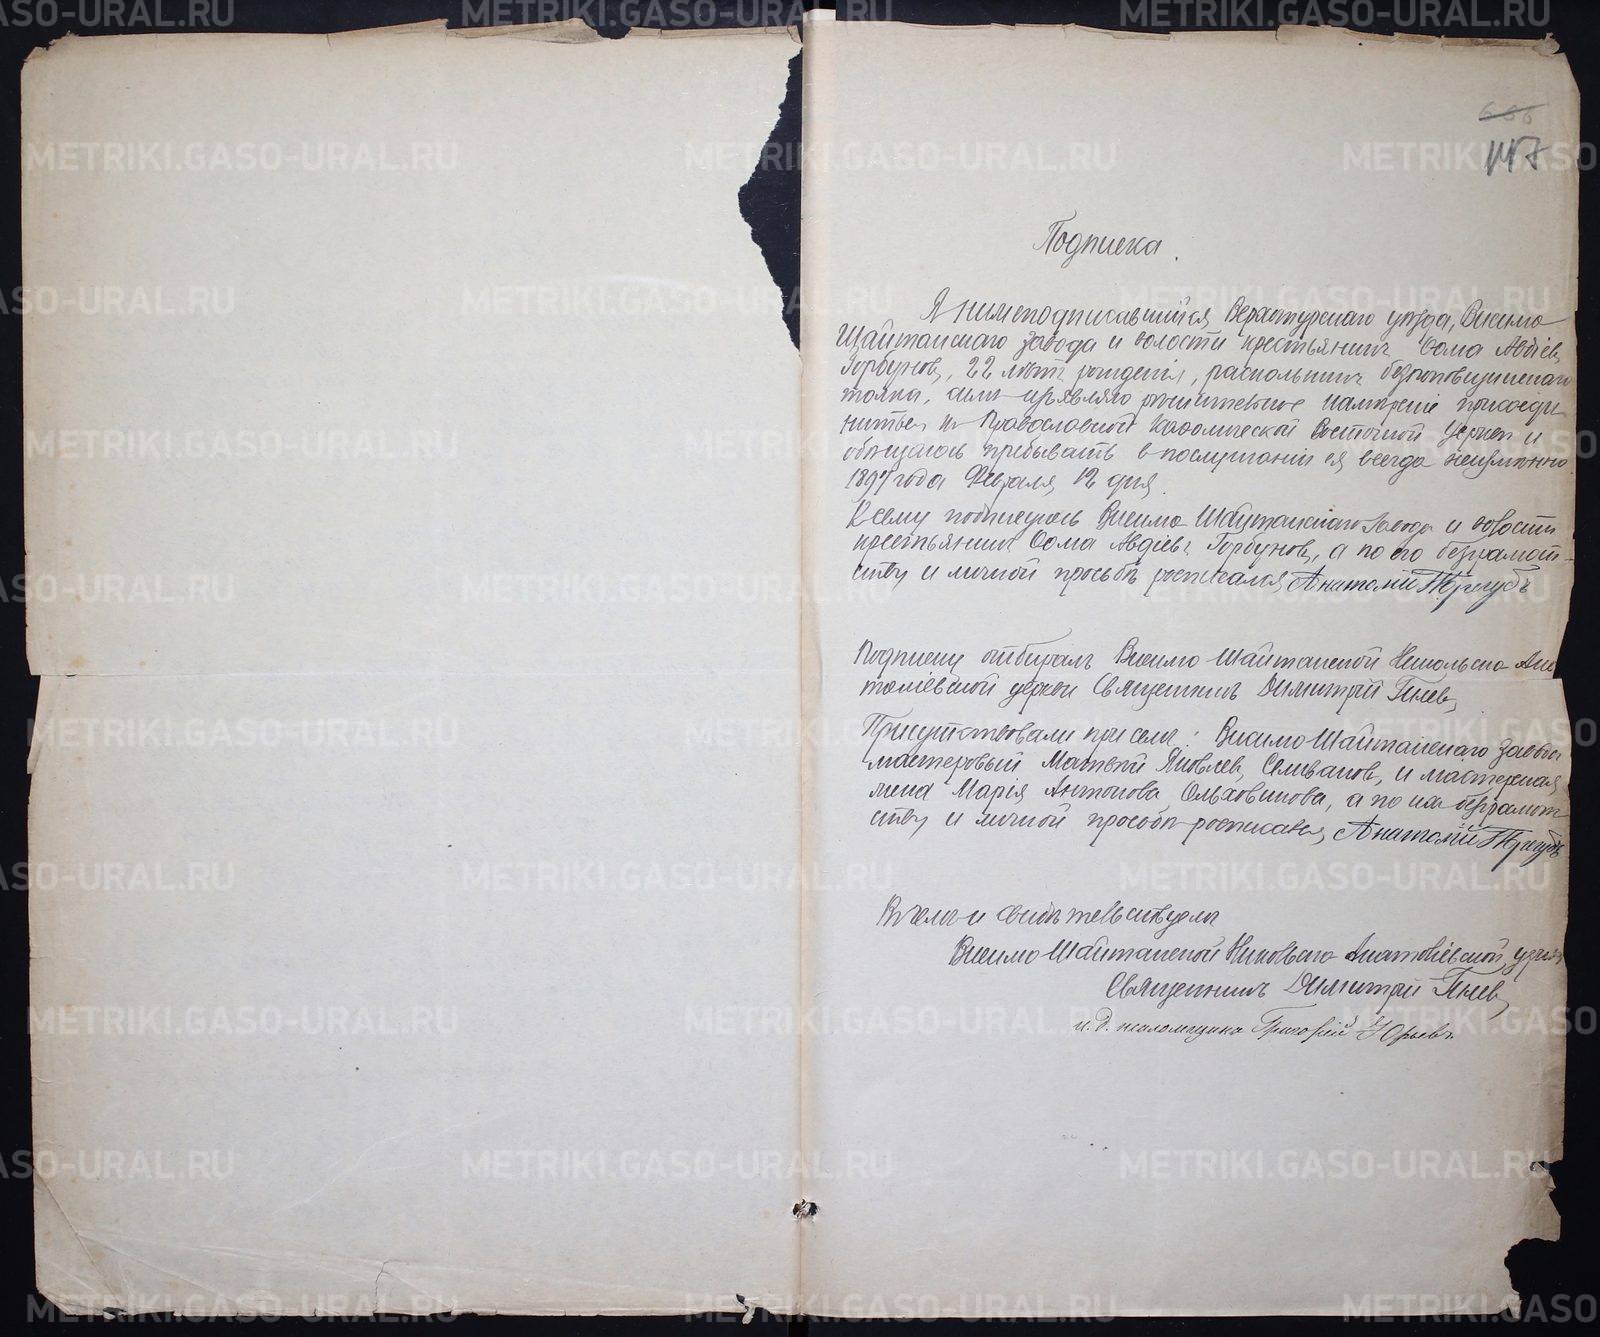 147
Подписка.
Я нижеподписавшийся Верхотурского уезда, Висимо
Шайтанского завода и волости крестьянинъ Ѳома Авдіевъ
Горбуновъ, 22 лѣтъ рожденія, раскольникъ безпоповщинскаго
толка, симъ изъявляю рѣшительное намѣреніе присоеди
ниться къ Православной Каѳолической Восточной Церкви и
обѣщаюсь пребывать въ послушаніи ея всегда неизмѣнно.
1897 года Февраля 12 дня.
Къ сему подпишусь Висимо Шайтанского завода и волости
крестьянинъ Ѳома Авдіевъ Горбуновъ, а по его безграмот-
ству и личной просьбѣ росписался Анатолій
Подписку отбиралъ Висимо Шайтанской Никольско Ана
толіевской церкви Священникъ Димитрій Гилевъ
Присутствовали при семъ: Висимо Шайтанскаго завода
мастеровый Матвѣй Яковлевъ Селивановъ, и мастерская
жена Марія Антонова Ольховикова, а по ихъ безграмот
ству и личной просьбѣ росписался Анатолій
Въ чемъ и свидѣтельствуемъ
Висимо Шайтанской Никольско Анатоліевской церкви
Священникъ Димитрій Гилевъ
и. д. псаломщика Григорій Юрьевъ.
METRIKI.GASO-URAL.RU